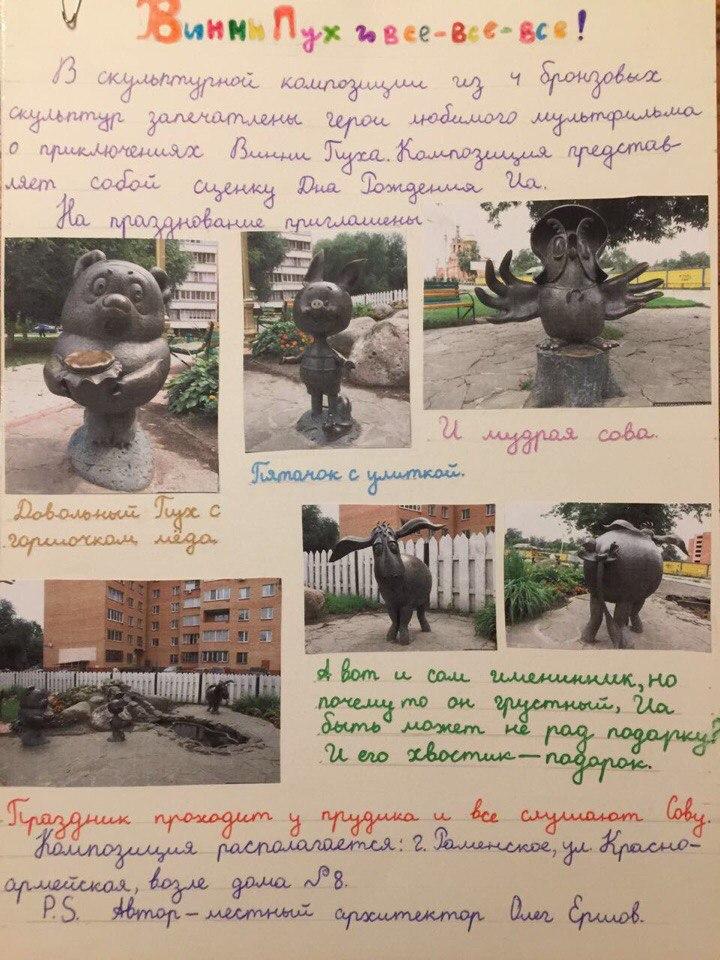 Винни Пух и все-все-все!
В скульптурной композиции из 4 бронзовых
скульптур запечатлены герои любимого мультфильма
о приключениях Винни Пуха. Композиция представ-
ляет собой сценку Дня Рождения Иа.
На празднование приглашены
И мудрая сова.
Пятачок с улиткой.
Довольный Пух с
горшочком меда.
А вот и сам именинник, но
почему то он грустный, Иа
быть может не рад подарку?
И его хвостик – подарок.
Праздник проходит у прудика и все слушают Сову.
Композиция располагается: г. Раменское, ул. Красно-
армейская, возле дома №8.
P.S. Автор – местный архитектор Олег Ершов.